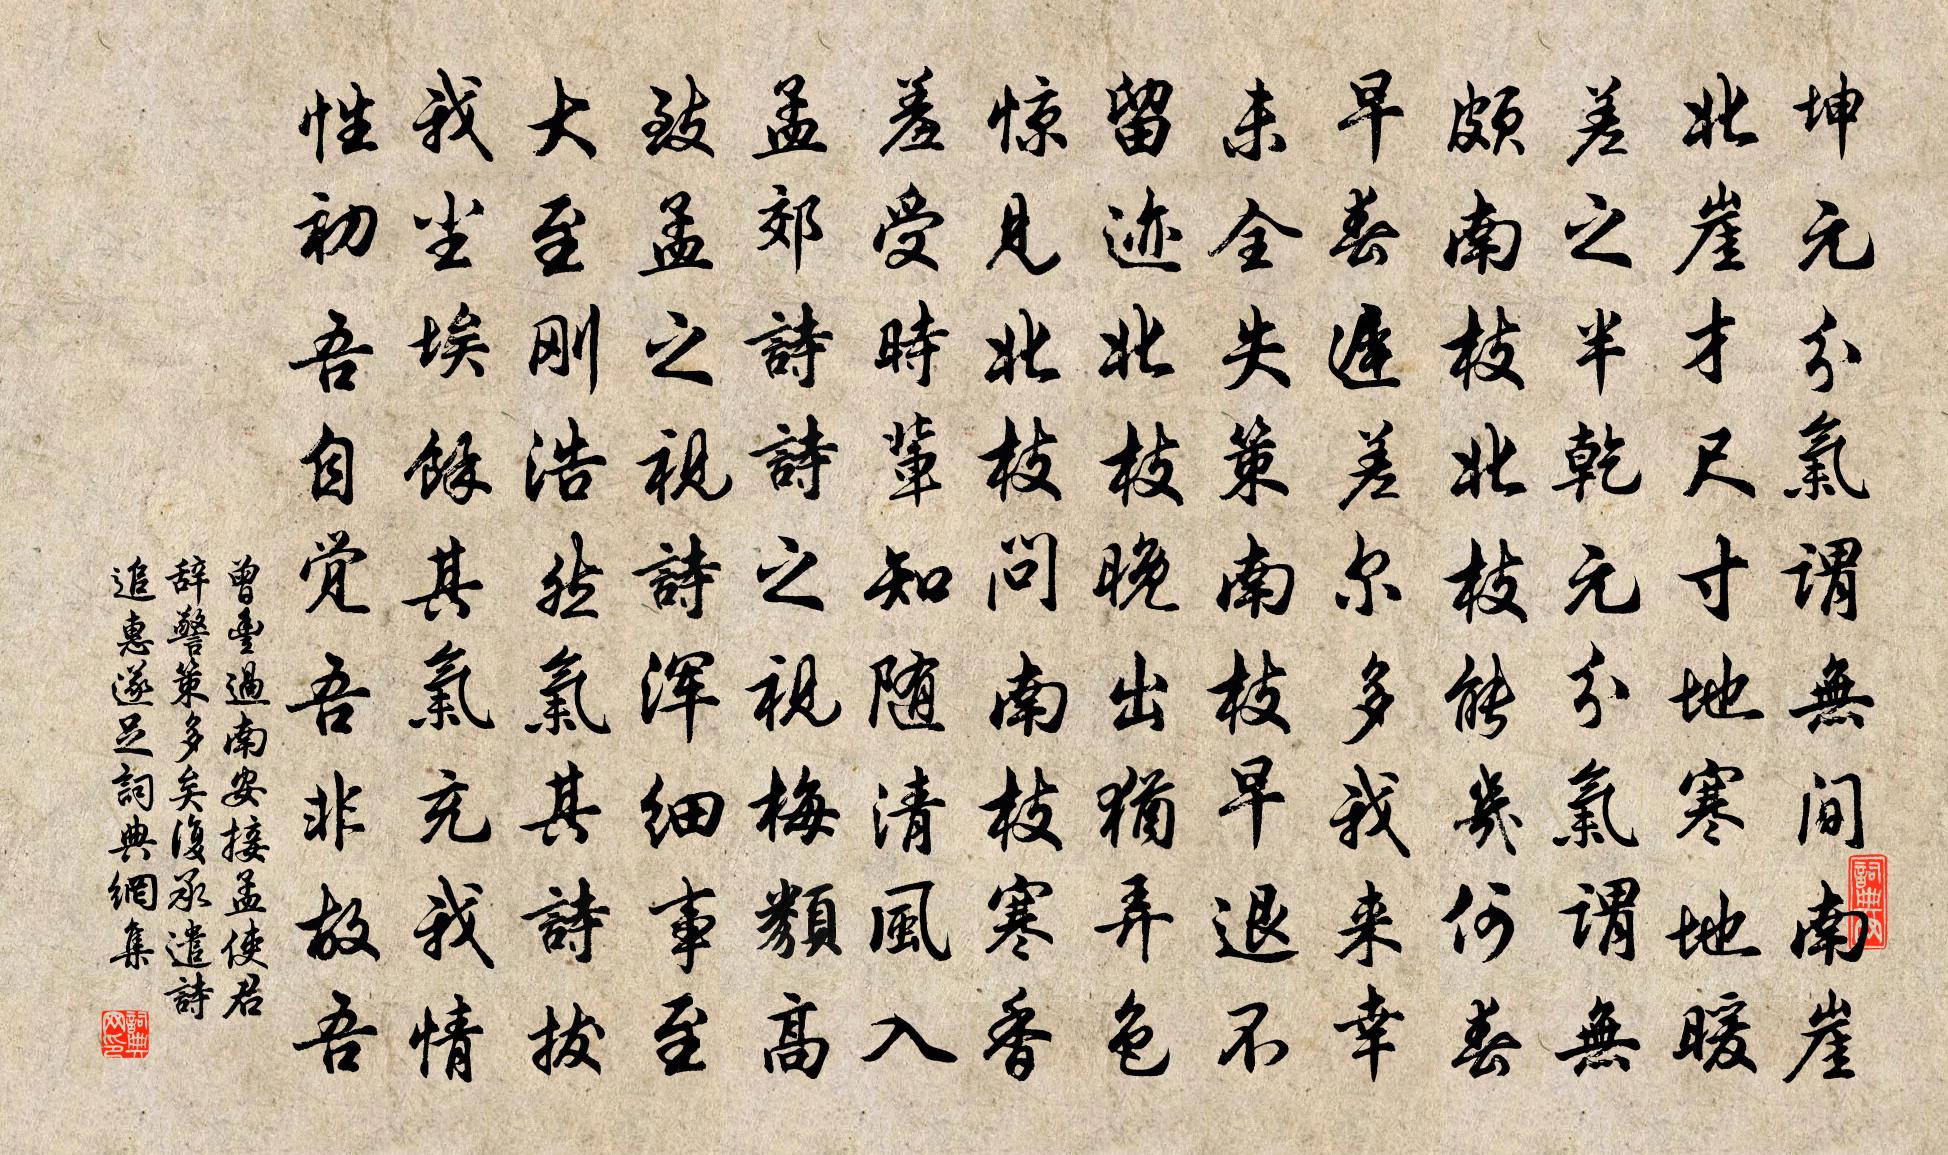 坤元分氣謂無間南崖
北崖才尺寸地寒地暖
差之半乾元分氣謂無
頗南枝北枝能幾何春
早春遲差尔多我来幸
未全失策南枝早退不
留迹北枝晚出猶弄色
惊見北枝问南枝寒香
羞受時輩知随清風入
孟郊詩詩之視梅類高
致孟之視詩浑细事至
大至刚浩然氣其詩拔
我尘埃餘其氣充我情
性初吾自觉吾非故吾
曾豊過南安接孟使君
辞警策多矣復承遣詩
追惠遂足詞典網集